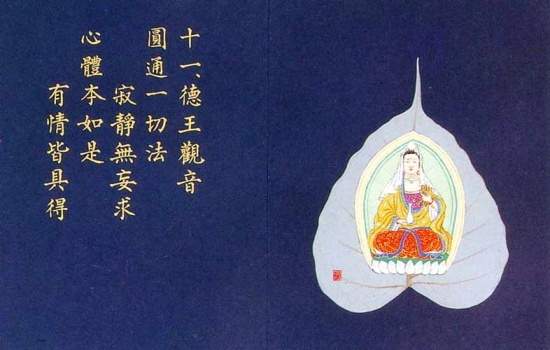 十一、德王觀音
圓通一切法
寂靜無妄求
心體本如是
有情皆具得